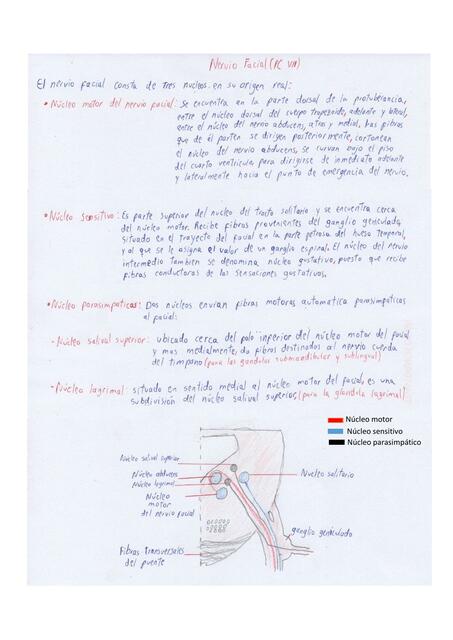 Nervio Facial (PC VII)
El nervio facial consta de tres nucleos en su origen real:
• Núcleo motor del nervio facial: Se encuentra en la parte dorsal de la protuberancia,
entre el núcleo dorsal del cuerpo trapezoide, adelante y lateral,
entre el núcleo del nervio abducens, atras y medial. Las fibras
que de él parten se dirigen posteriormente, contornean
el núcleo del nervio abducens, se curvan bajo el piso
del cuarto ventrículo, para dirigirse de inmediato adelante
y lateralmente hacia el punto de emergencia del nervio.
• Núcleo sensitivo: Es parte superior del nucleo del tracto solitario y se encuentra cerca
del núcleo motor. Recibe fibras provenientes del ganglio geniculado,
situado en el trayecto del facial en la parte petrosa del hueso temporal,
y al que se le asigna el valor de un ganglio espinal. El núcleo del nervio
intermedio tambien se denomina núcleo gustativo, puesto que recibe
fibras conductoras de las sensaciones gustativas.
• Núcleo parasimpaticos: Dos núcleos envían fibras motoras automatica parasimpáticas
al facial:
- Núcleo salival superior: ubicado cerca del polo inferior del núcleo motor del facial
y mas medialmente, da fibras destinados al nervio cuerda
del timpano (para las glandulas submandibular y sublingual)
- Núcleo lagrimal: situado en sentido medial al núcleo motor del facial, es una
subdivisión del núcleo salival superior (para la glándula lagrimal)
Núcleo motor
Núcleo sensitivo
Núcleo parasimpático
Núcleo salival superior
Núcleo abducens
Núcleo lagrimal
Núcleo
motor
del nervio facial
Nucleo solitario
ganglio geniculado
Fibras Transversales
del puente